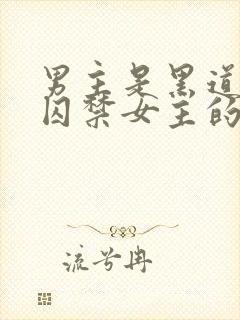 男主是黑道
囚禁女主的
流兮冉